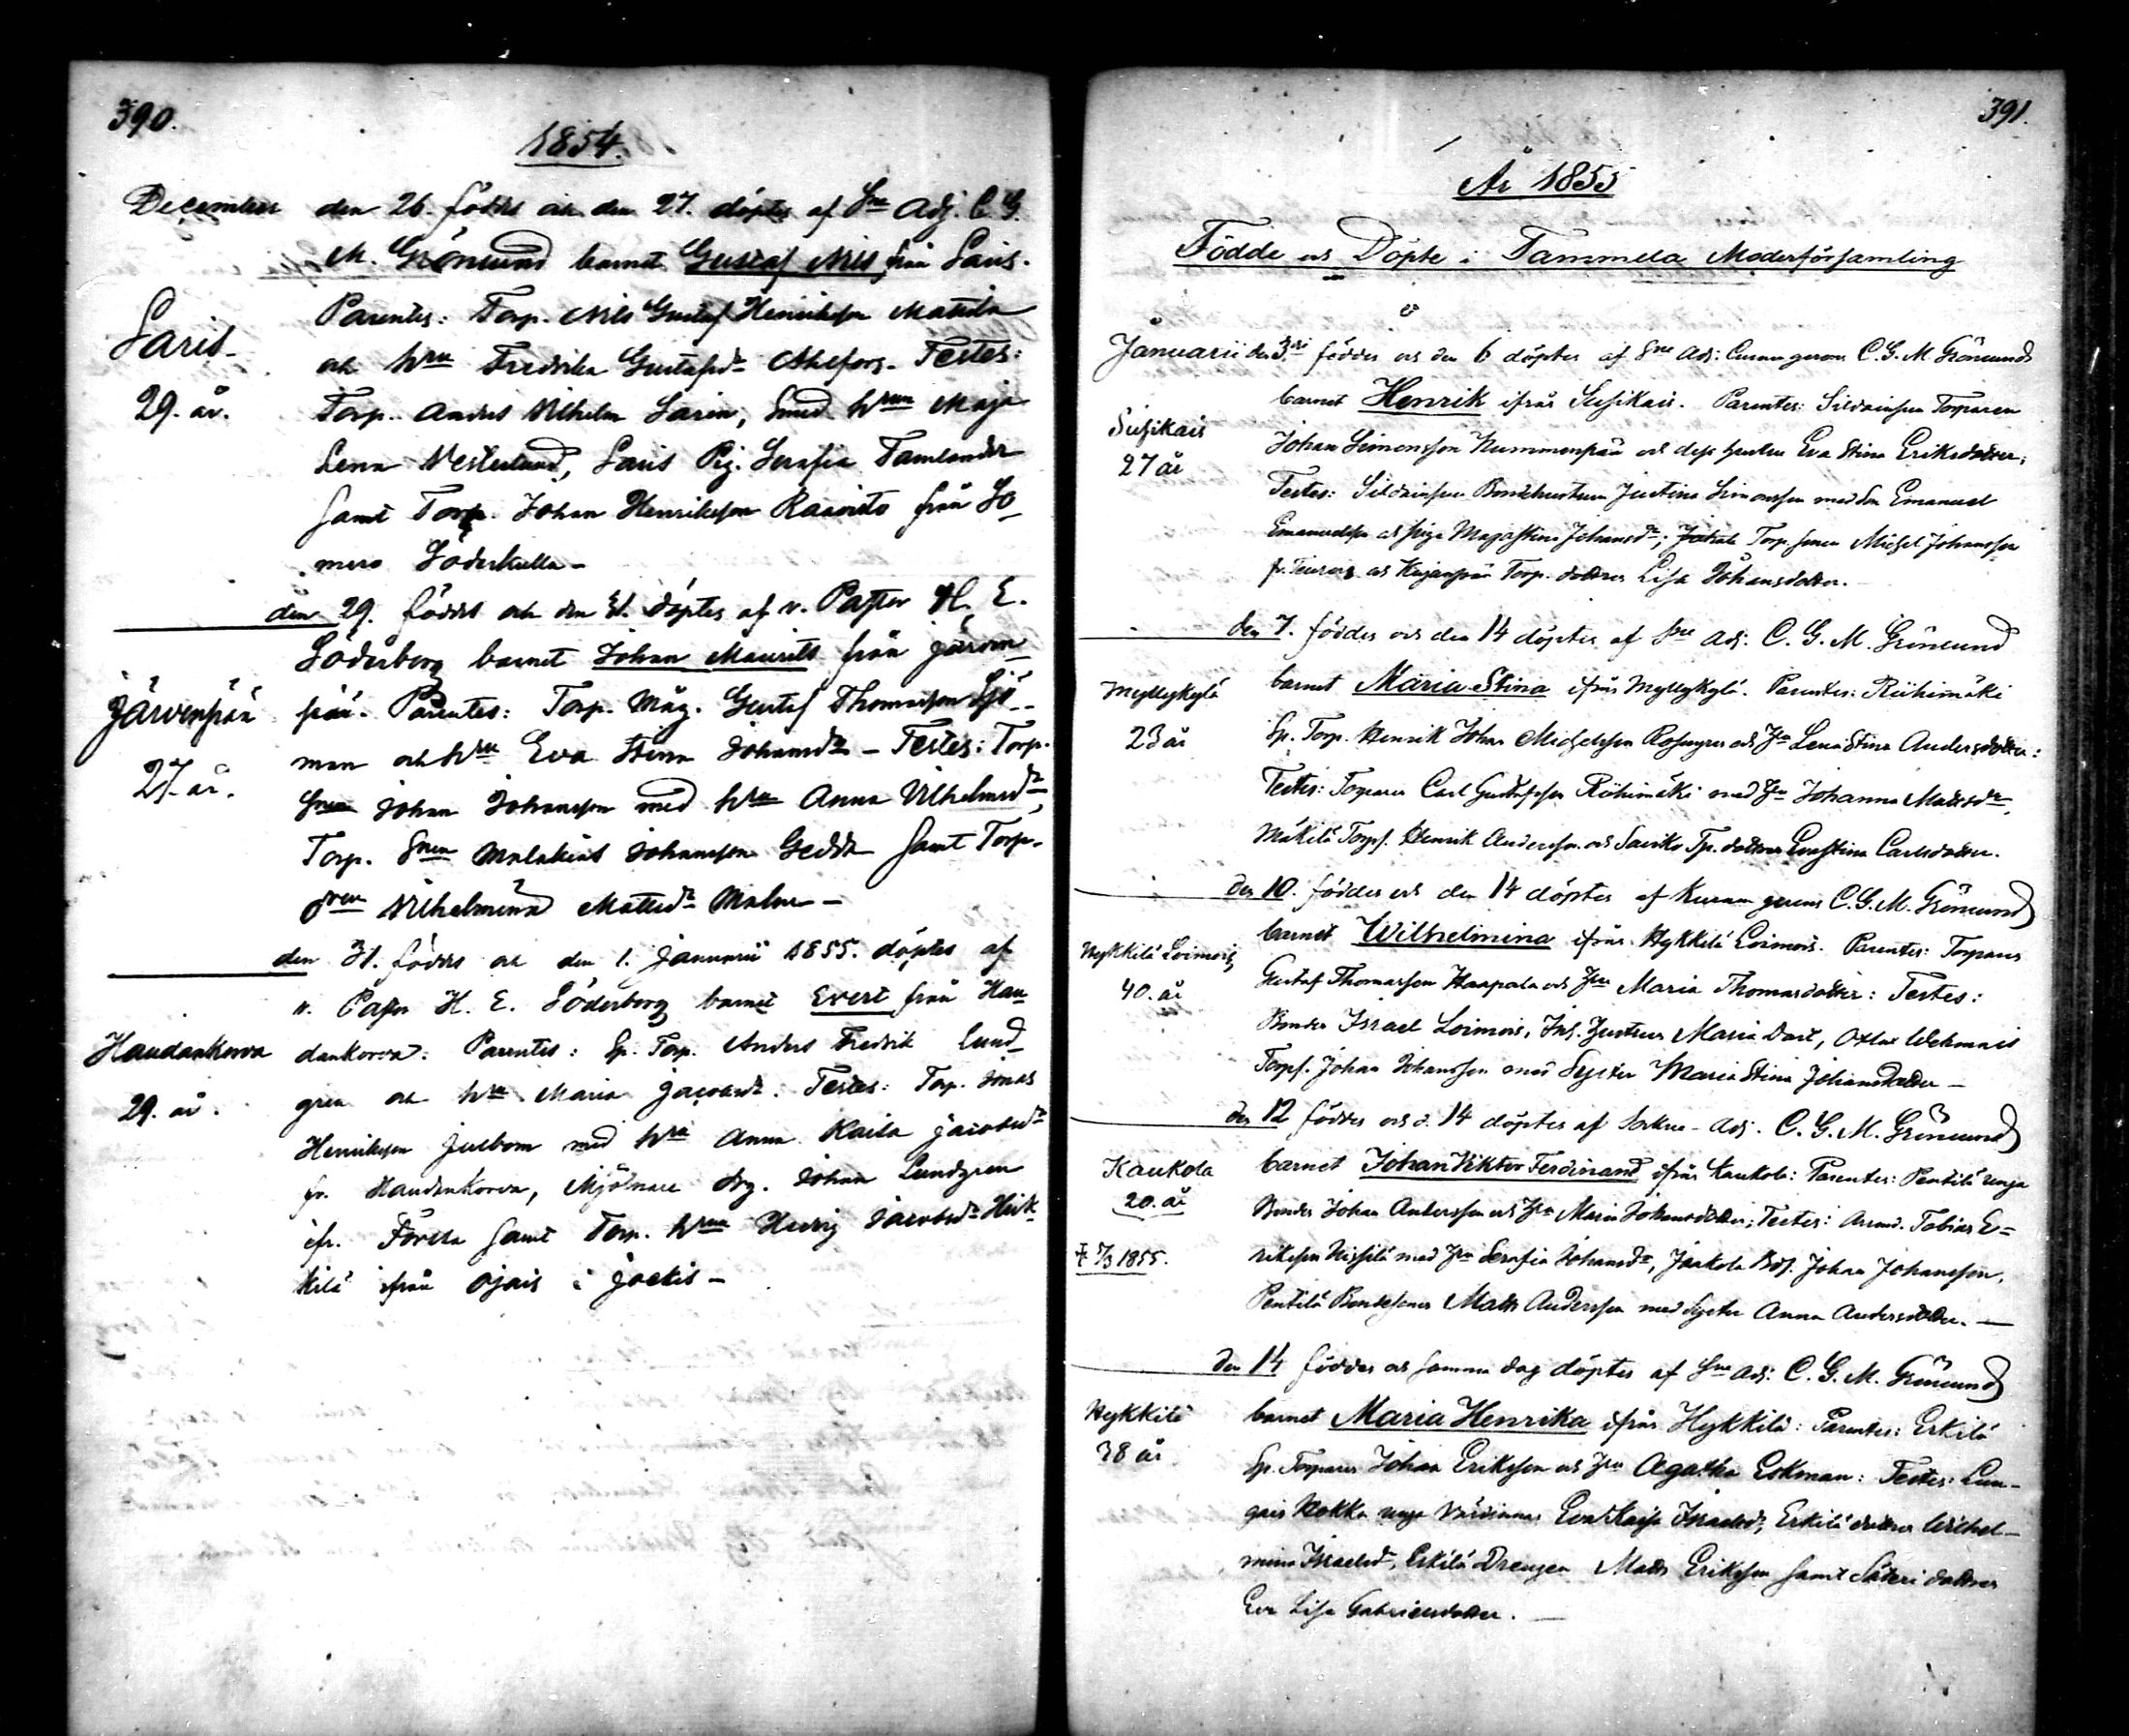 390.
1854.
December den 26. föddes och den 27. döptes af Sne Adj. C. G.
M. Grönlund barnet Gustaf Nils från Saris.
Parentes: Torp. Nils Gustaf Henriksson Mattila
Saris och hru Fredrika Gustafsdr Testes:
29. år. Torp. Anders Vilhelm Sarin, Smed hrun Maja
Lena Vesterlund, Saris Pig. Serafia Tamlander
samt Torp. Johan Henriksson från So-
mero Söderkulla –
den 29. föddes och den 31. döptes af v. Pastor H. E.
Söderborg barnet Johan Maurits från Järven-
Järvenpää pää. Parentes: Torp. Måg. Gustaf Thomasson Sjö-
27. år. man och hru Eva Stina Johansdr – Testes: Torp.
Johan Johansson med hru Anna Vilhelmsdr,
Torp. Snen Malakias Johansson Gedda samt Torp.
dren Vilhelmina Mattsdr Malm –
den 31. föddes och den 1. Januarii 1855. döptes af
v. Pastor H. E. Söderborg barnet Evert från Hau
Haudankorva dankorva. Parentes: Sp. Torp. Anders Fredrik Lund
29. år. gren och hru Maria Jacobsdr. Testes: Torp. Jonas
Henriksson Julbom med hru Anna Kaisa Jacobsdr
fr. Haudankorva, Mjölnare drg. Johan Lundgren
ifr. Forssa samt Torp. hrun Hedvig Jacobsdr Heik-
kilä ifrån Ojais i Jockis –
391.
År 1855
Födde och Döpte i Tammela Moderförsamling
Januarii den 3di föddes och den 6 döptes af Sne Adj: Curam gerens C. G. M. Grönlund
barnet Henrik ifrån Susikais. Parentes: Torparen
Susikais Johan Simonsson Nummenpää och dess hustru Eva Stina Eriksdotter;
27 år Testes: Bondehustrun Justina Simonsson med Son Emanuel
Emanuelsson och piga Majastina Johansdr; Torp. sonen Michel Johansson
fr. Teuro och Kujanpää Torp. dottren Lisa Johansdotter.
den 7. föddes och den 14 döptes af Sne Adj. C. G. M. Grönlund
Myllykylä barnet Maria Stina ifrån Myllykylä. Parentes: Riihimäki
23 år Sp. Torp. Henrik Johan Michelsson Rosengren och Hru Lena Stina Andersdotter:
Testes: Torparen Carl Gustafsson Riihimäki med Hru Johanna Mattsdr,
Mäkilä Torps. Henrik Andersson och Saviko Tp. dottren Evastina Carlsdotter.
den 10. föddes och den 14 döptes af Kuram gerens C. G. M. Grönlund
Hykkilä Loimois barnet Wilhelmina ifrån Hykkilä Loimois. Parentes: Torparen
40. år Gustaf Thomasson Haapala och Hru Maria Thomasdotter: Testes:
Bonden Israel Loimois, Inh. Hustrun Maria Dort,
Torps. Johan Johansson med Syster Maria Stina Johansdotter –
den 12 föddes och d. 14 döptes af Sockne-Adj. C. G. M. Grönlund
Kaukola barnet Johan Viktor Ferdinand ifrån Kaukola: Parentes: Pentilä unga
20. år Bonden Johan Andersson och Hru Maria Johansdotter; Testes: Arend. Tobias E=
‡ 7/3 1855. riksson Nissilä med Hru Serafia Johansdr, Jaakola Bds. Johan Johansson,
Pentilä Bondesonen Matts Andersson med Syster Anna Andersdotter. –
den 14 föddes och samma dag döptes af Sne Adj: C. G. M. Grönlund
Hykkilä barnet Maria Henrika ifrån Hykkilä: Parentes: Erkilä
38 år Sp. Torparen Johan Eriksson och Hru Agatha Ekman: Testes: Lun-
gais Hokka unga Värdinnan Eva Kaisa Israelsdr, Erkilä dottren Wilhel-
mina Israelsdr, Erkilä Drengen Matts Eriksson samt Säteri dottren
Eva Lisa Gabrielsdotter. –